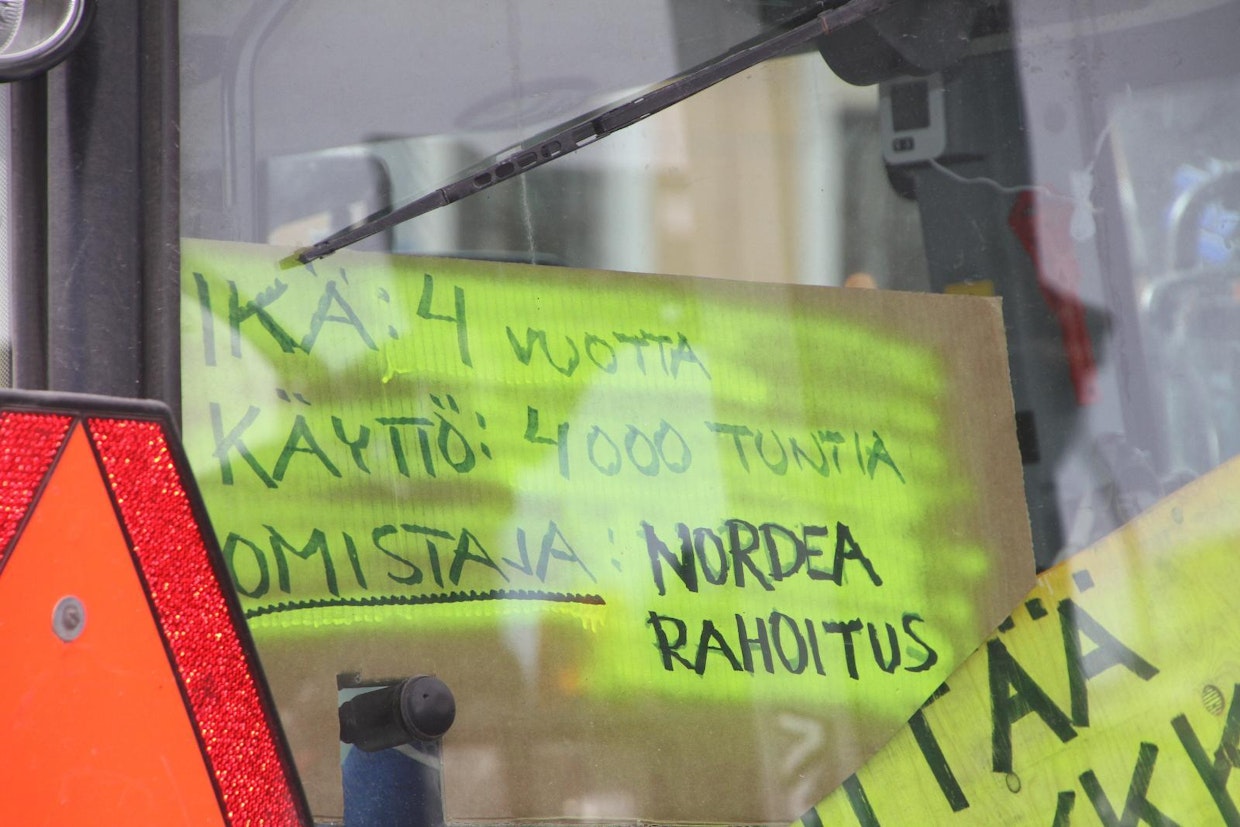 IKÄ: 4 VUOTTA
KÄYTTÖ: 4000 TUNTIA
OMISTAJA: NORDEA
RAHOITUS